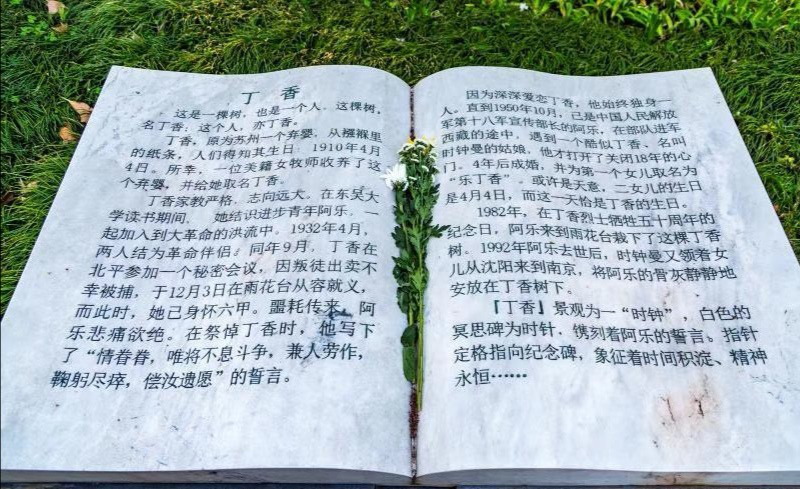 丁香
这是一棵树，也是一个人。这棵树，
名丁香；这个人，亦丁香。
丁香，原为苏州一个弃婴，从襁褓里
的纸条，人们得知其生日：1910年4月
4日。所幸，一位美籍女牧师收养了这
个弃婴，并给她取名丁香。
丁香家教严格，志向远大，在东吴大
学读书期间，她结识进步青年阿乐，一
起加入到大革命的洪流中。1932年4月，
两人结为革命伴侣。同年9月，丁香在
北平参加一个秘密会议，因叛徒出卖不
幸被捕，于12月3日在雨花台从容就义，
而此时，她已身怀六甲。噩耗传来，阿
乐悲痛欲绝。在祭悼丁香时，他写下
了“情眷眷，唯将不息斗争，兼人劳作，
鞠躬尽瘁，偿汝遗愿”的誓言。
因为深深爱恋丁香，他始终独身一
人。直到1950年10月，已是中国人民解放
军第十八军宣传部长的阿乐，在部队进军
西藏的途中，遇到一个酷似丁香、名叫
时钟曼的姑娘，他才打开了关闭18年的心
门。4年后成婚，并为第一个女儿取名为
“乐丁香”。或许是天意，二女儿的生日
是4月4日，而这一天恰是丁香的生日。
1982年，在丁香烈士牺牲五十周年的
纪念日，阿乐来到雨花台栽下了这棵丁香
树。1992年阿乐去世后，时钟曼又领着女
儿从沈阳来到南京，将阿乐的骨灰静静地
安放在丁香树下。
「丁香」景观为一“时钟”，白色的
冥思碑为时针，镌刻着阿乐的誓言。指针
定格指向纪念碑，象征着时间积淀、精神
永恒……